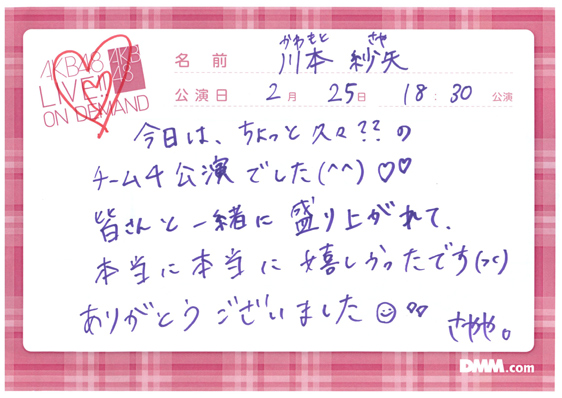 AKB48
LIVE!!
ON DEMAND
AKB
48
名前
かわもと さや
川本 紗矢
公演日 2月 25日 18:30 公演
今日は、ちょっと久々??の
チーム4公演でした(^^)♡♡
皆さんと一緒に盛り上がれて、
本当に本当に嬉しかったです(つく)
ありがとうございました☺♡♡
さやや。
DMM.com